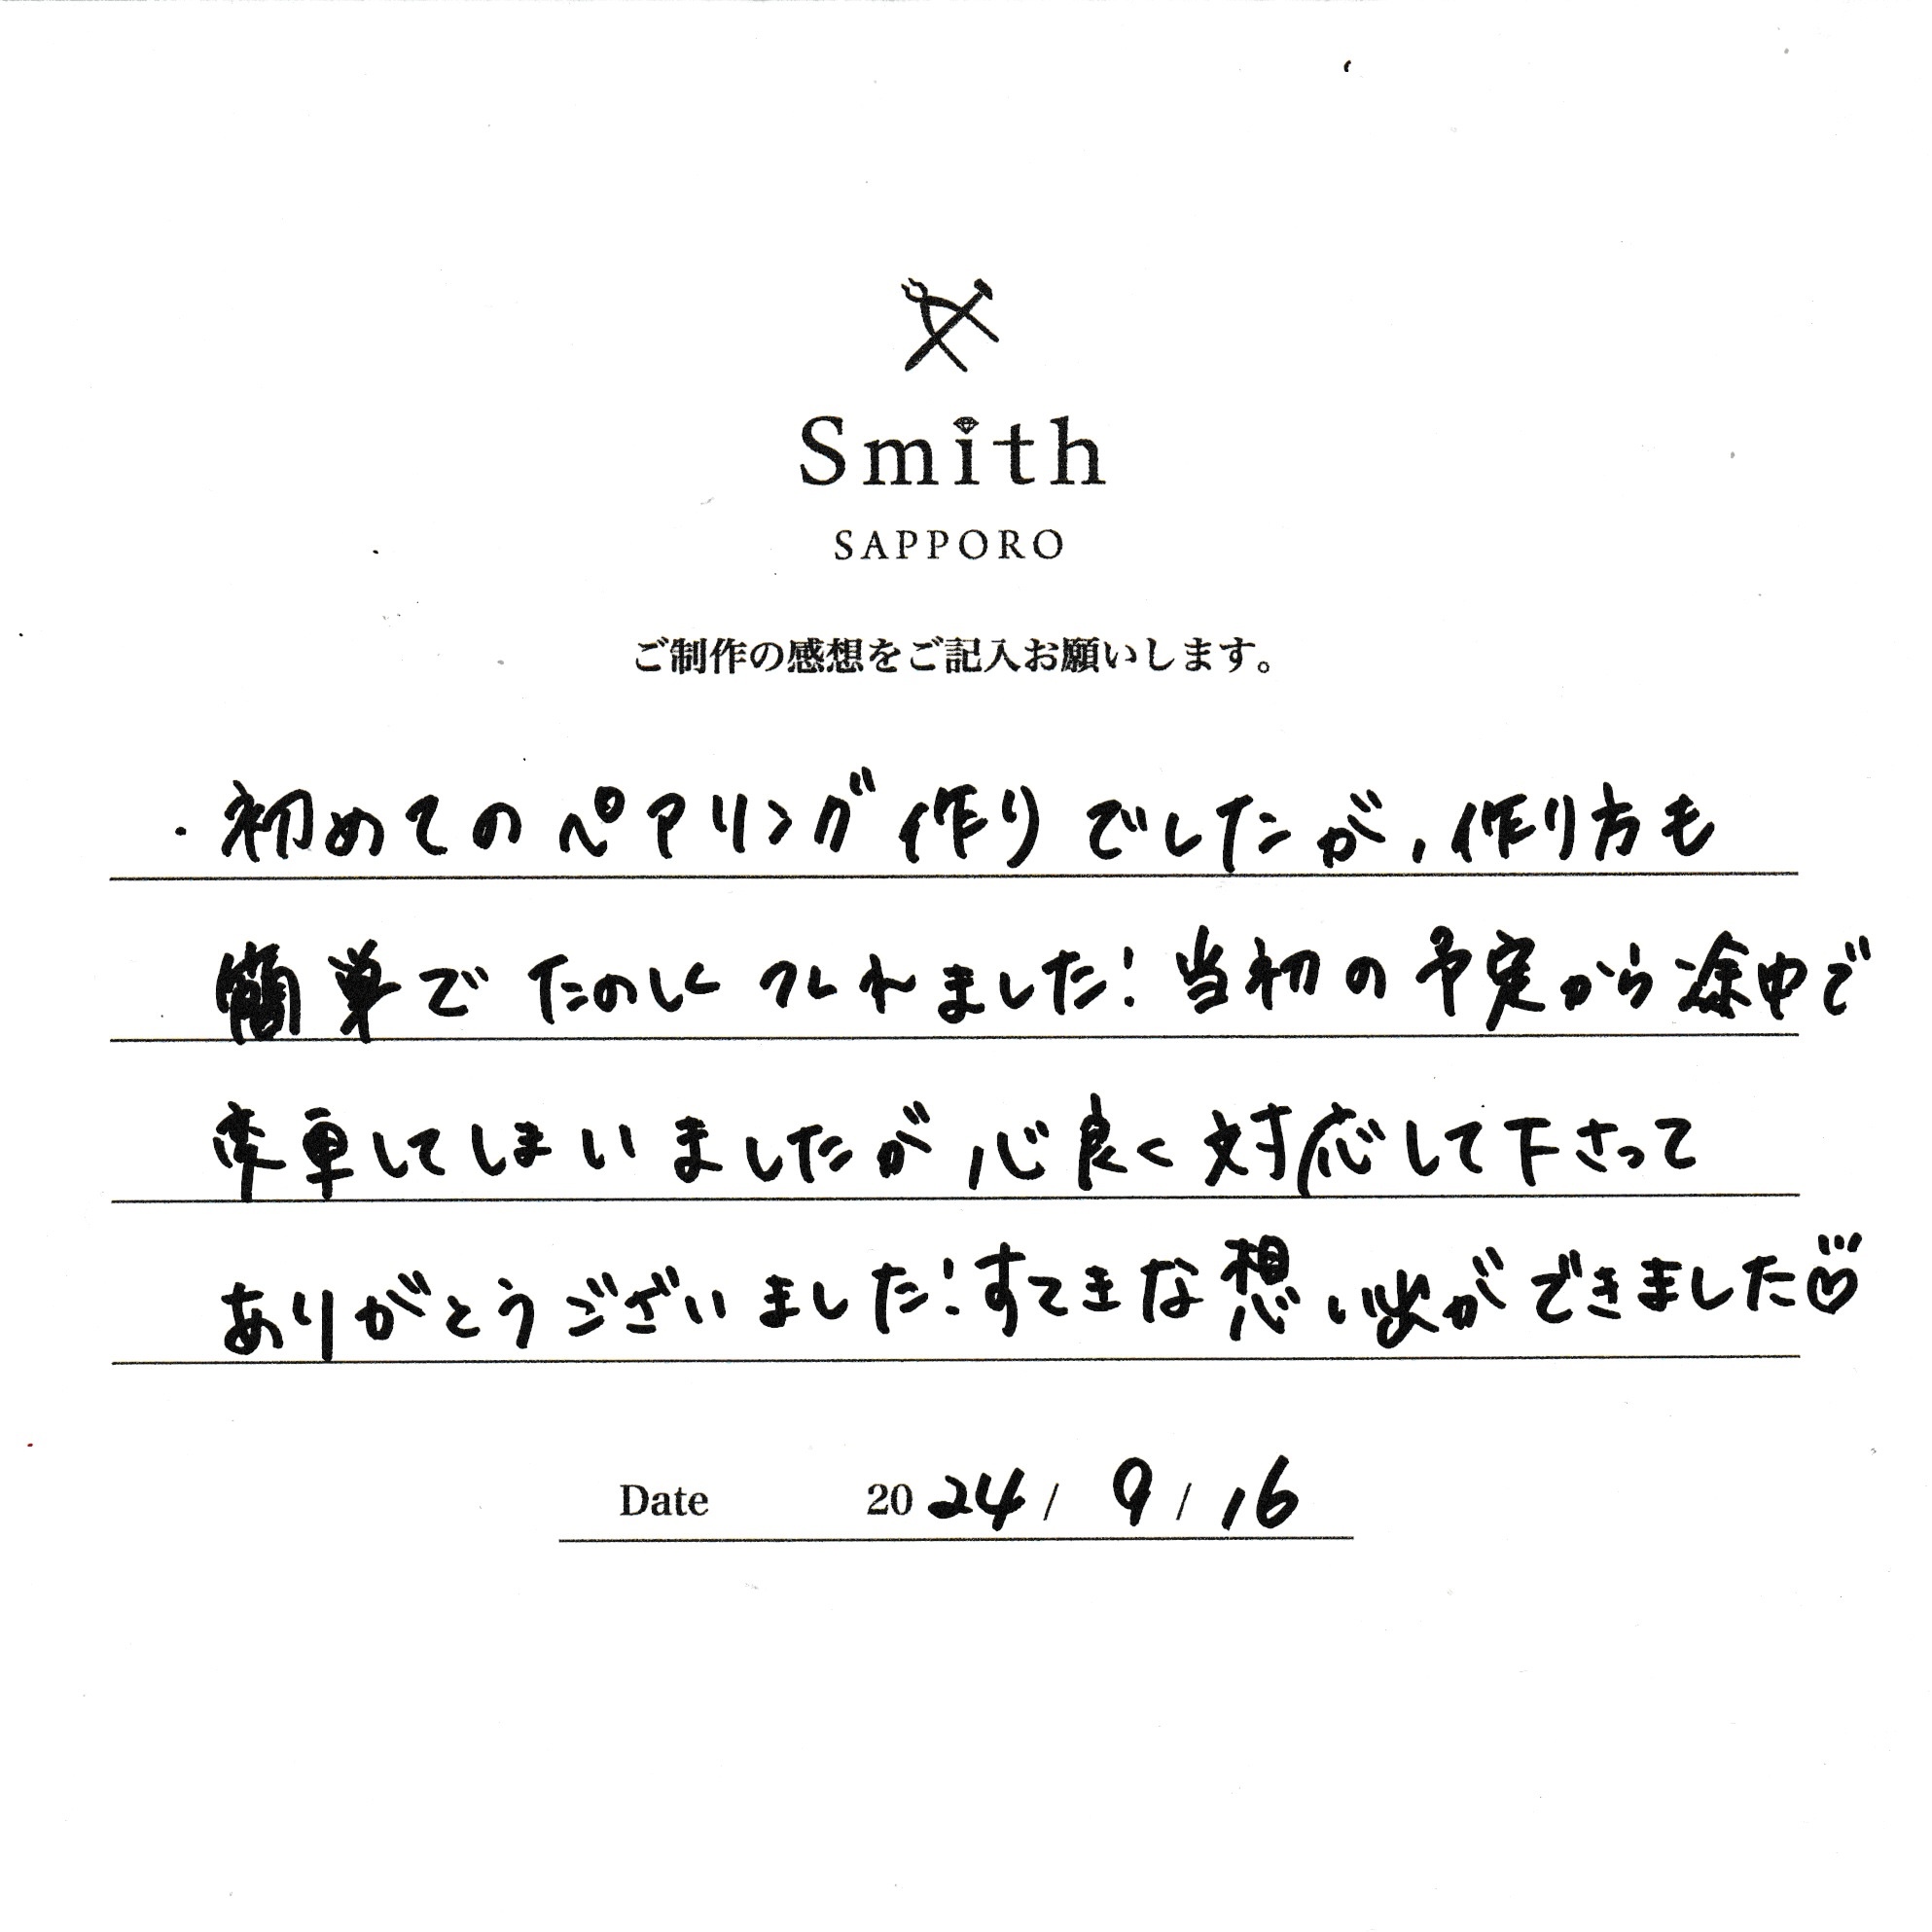 Smith
SAPPORO
ご制作の感想をご記入お願いします。
・初めてのペアリング作りでしたが、作り方も
簡単でたのしくつくれました!当初の予定から途中で
変更してしまいましたが心良く対応して下さって
ありがとうございました!すてきな想い出ができました♡
Date 2024/9/16